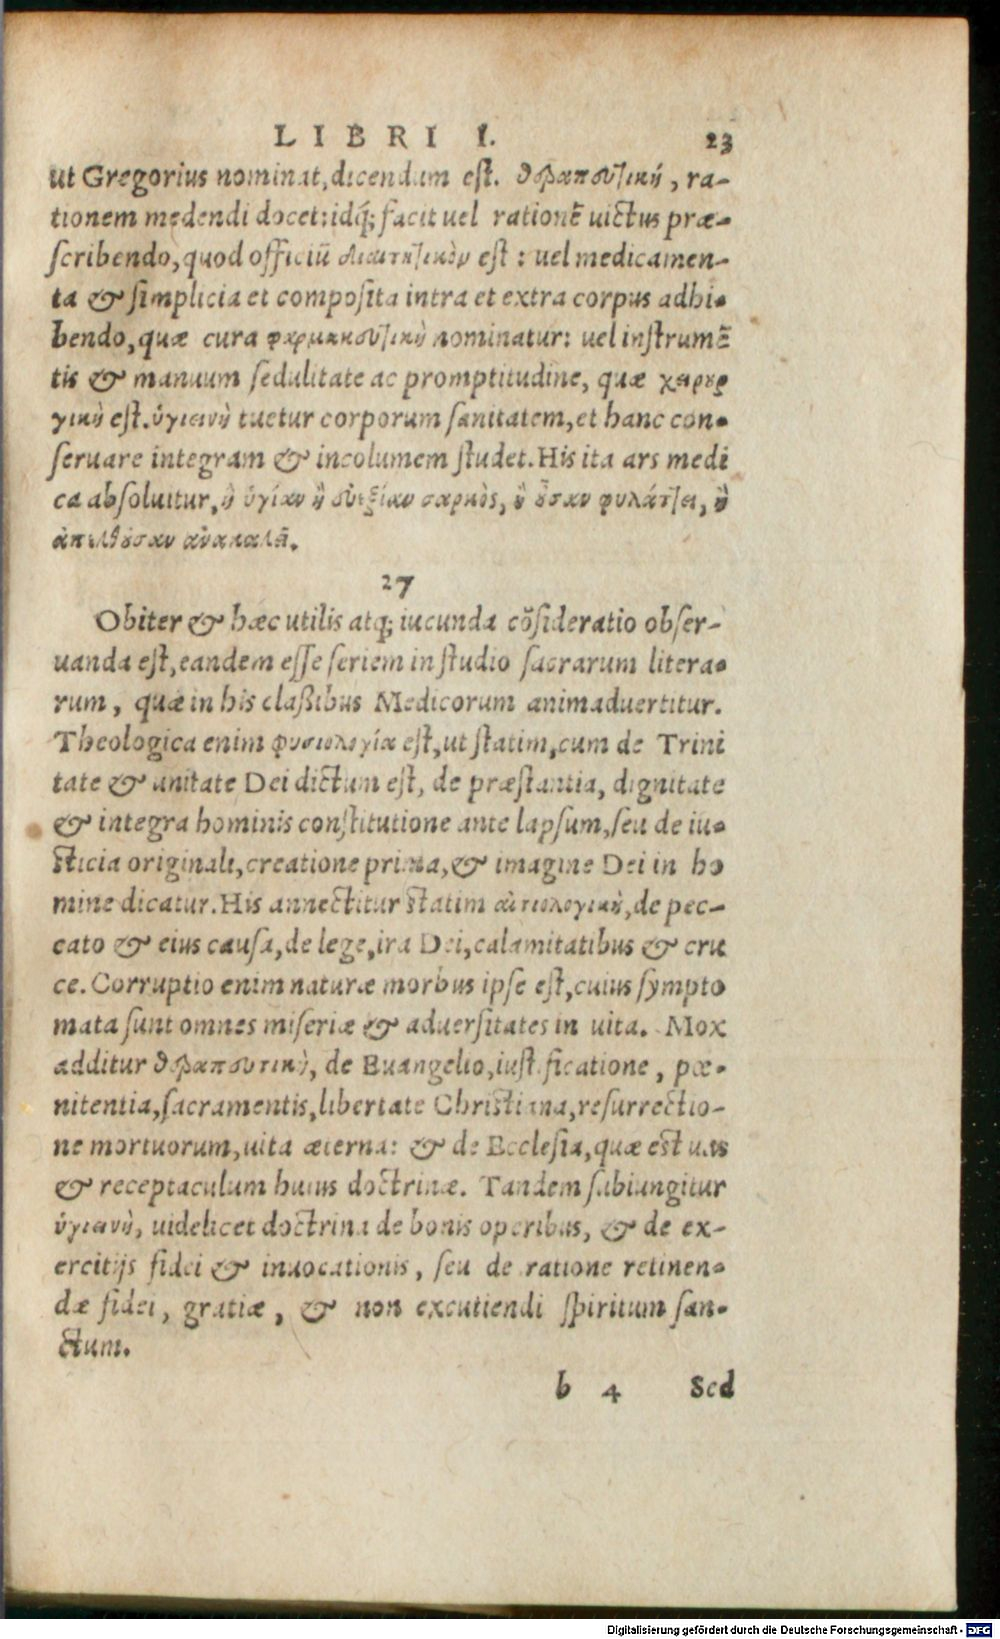 LIBRI I. 23
ut Gregorius nominat, dicendum est. θεραπευτικὴ, ra-
tionem medendi docet: idq; facit uel rationē uictus præ-
scribendo, quod officiū διαιτητικὸν est: uel medicamen-
ta & simplicia et composita intra et extra corpus adhi-
bendo, quæ cura φαρμακευτικὴ nominatur: uel instrumē
tis & manuum sedulitate ac promptitudine, quæ χειρουρ
γικὴ est. ὑγιεινὴ tuetur corporum sanitatem, et hanc con-
seruare integram & incolumem studet. His ita ars medi
ca absoluitur, ἢ ὑγίαν ἢ εὐεξίαν σαρκὸς, ἢ οὖσαν φυλάττει, ἢ
ἀπελθοῦσαν ἀνακαλεῖ.
27
Obiter & hæc utilis atq; iucunda cōsideratio obser-
uanda est, eandem esse seriem in studio sacrarum litera-
rum, quæ in his claßibus Medicorum animaduertitur.
Theologica enim φυσιολογία est, ut statim, cum de Trini
tate & unitate Dei dictum est, de præstantia, dignitate
& integra hominis constitutione ante lapsum, seu de iu-
sticia originali, creatione prima, & imagine Dei in ho
mine dicatur. His annectitur statim αἰτιολογικὴ, de pec-
cato & eius causa, de lege, ira Dei, calamitatibus & cru
ce. Corruptio enim naturæ morbus ipse est, cuius sympto
mata sunt omnes miseriæ & aduersitates in uita. Mox
additur θεραπευτικὴ, de Euangelio, iustificatione, pœ-
nitentia, sacramentis, libertate Christiana, resurrectio-
ne mortuorum, uita æterna: & de Ecclesia, quæ est uas
& receptaculum huius doctrinæ. Tandem subiungitur
ὑγιεινὴ, uidelicet doctrina de bonis operibus, & de ex-
ercitijs fidei & inuocationis, seu de ratione retinen-
dæ fidei, gratiæ, & non excutiendi spiritum san-
ctum.
b 4 Sed
Digitalisierung gefördert durch die Deutsche Forschungsgemeinschaft - DFG